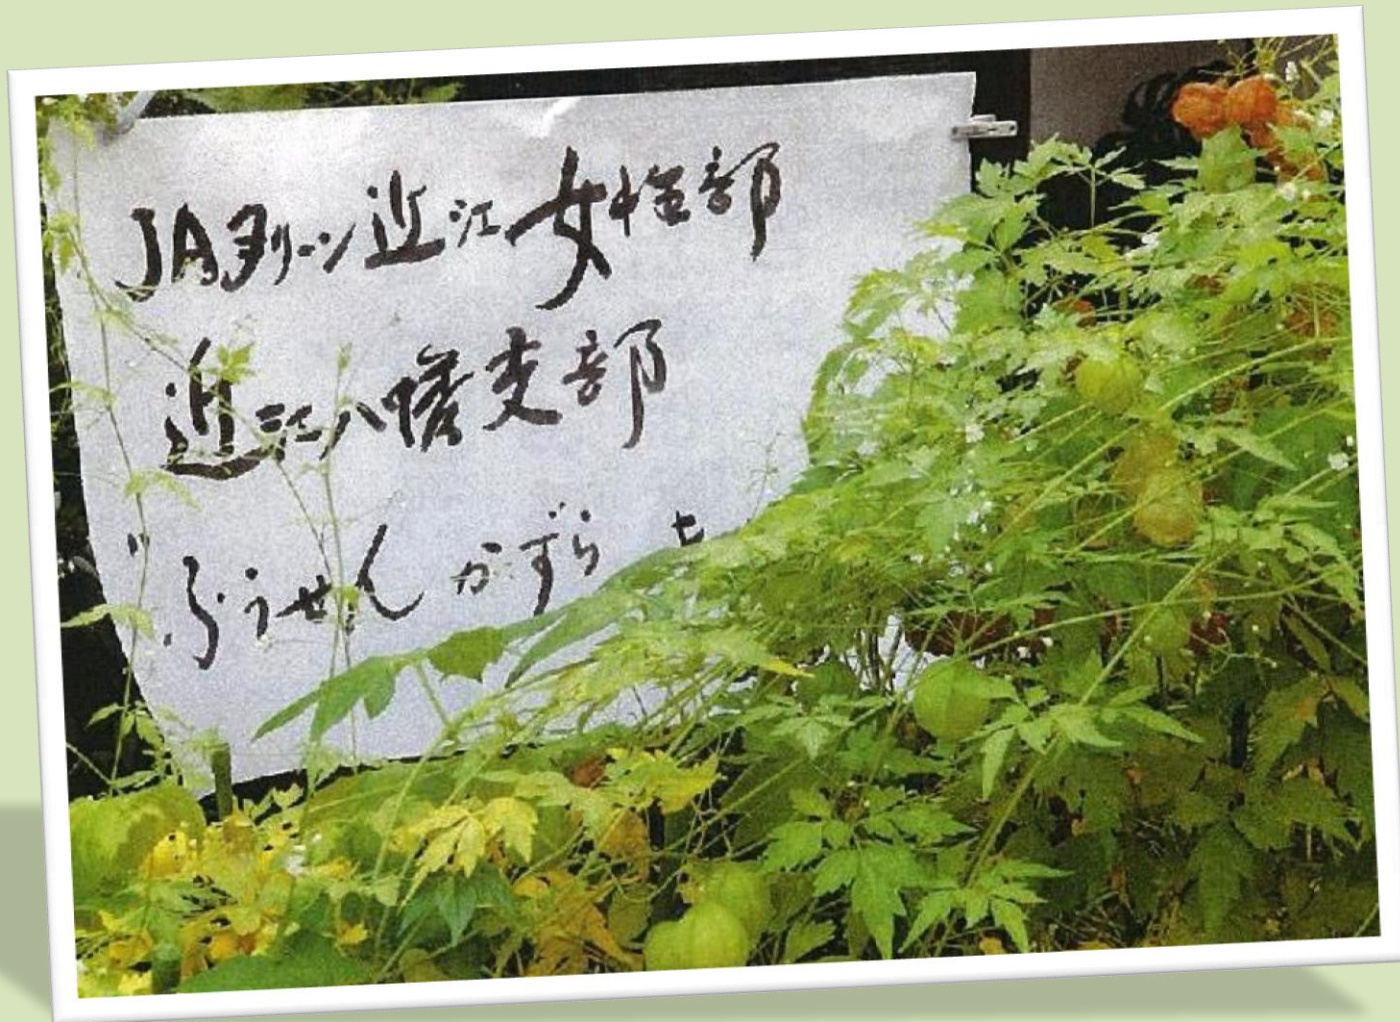 JAグリーン近江女性部
近江八幡支部
"ふうせんかずら